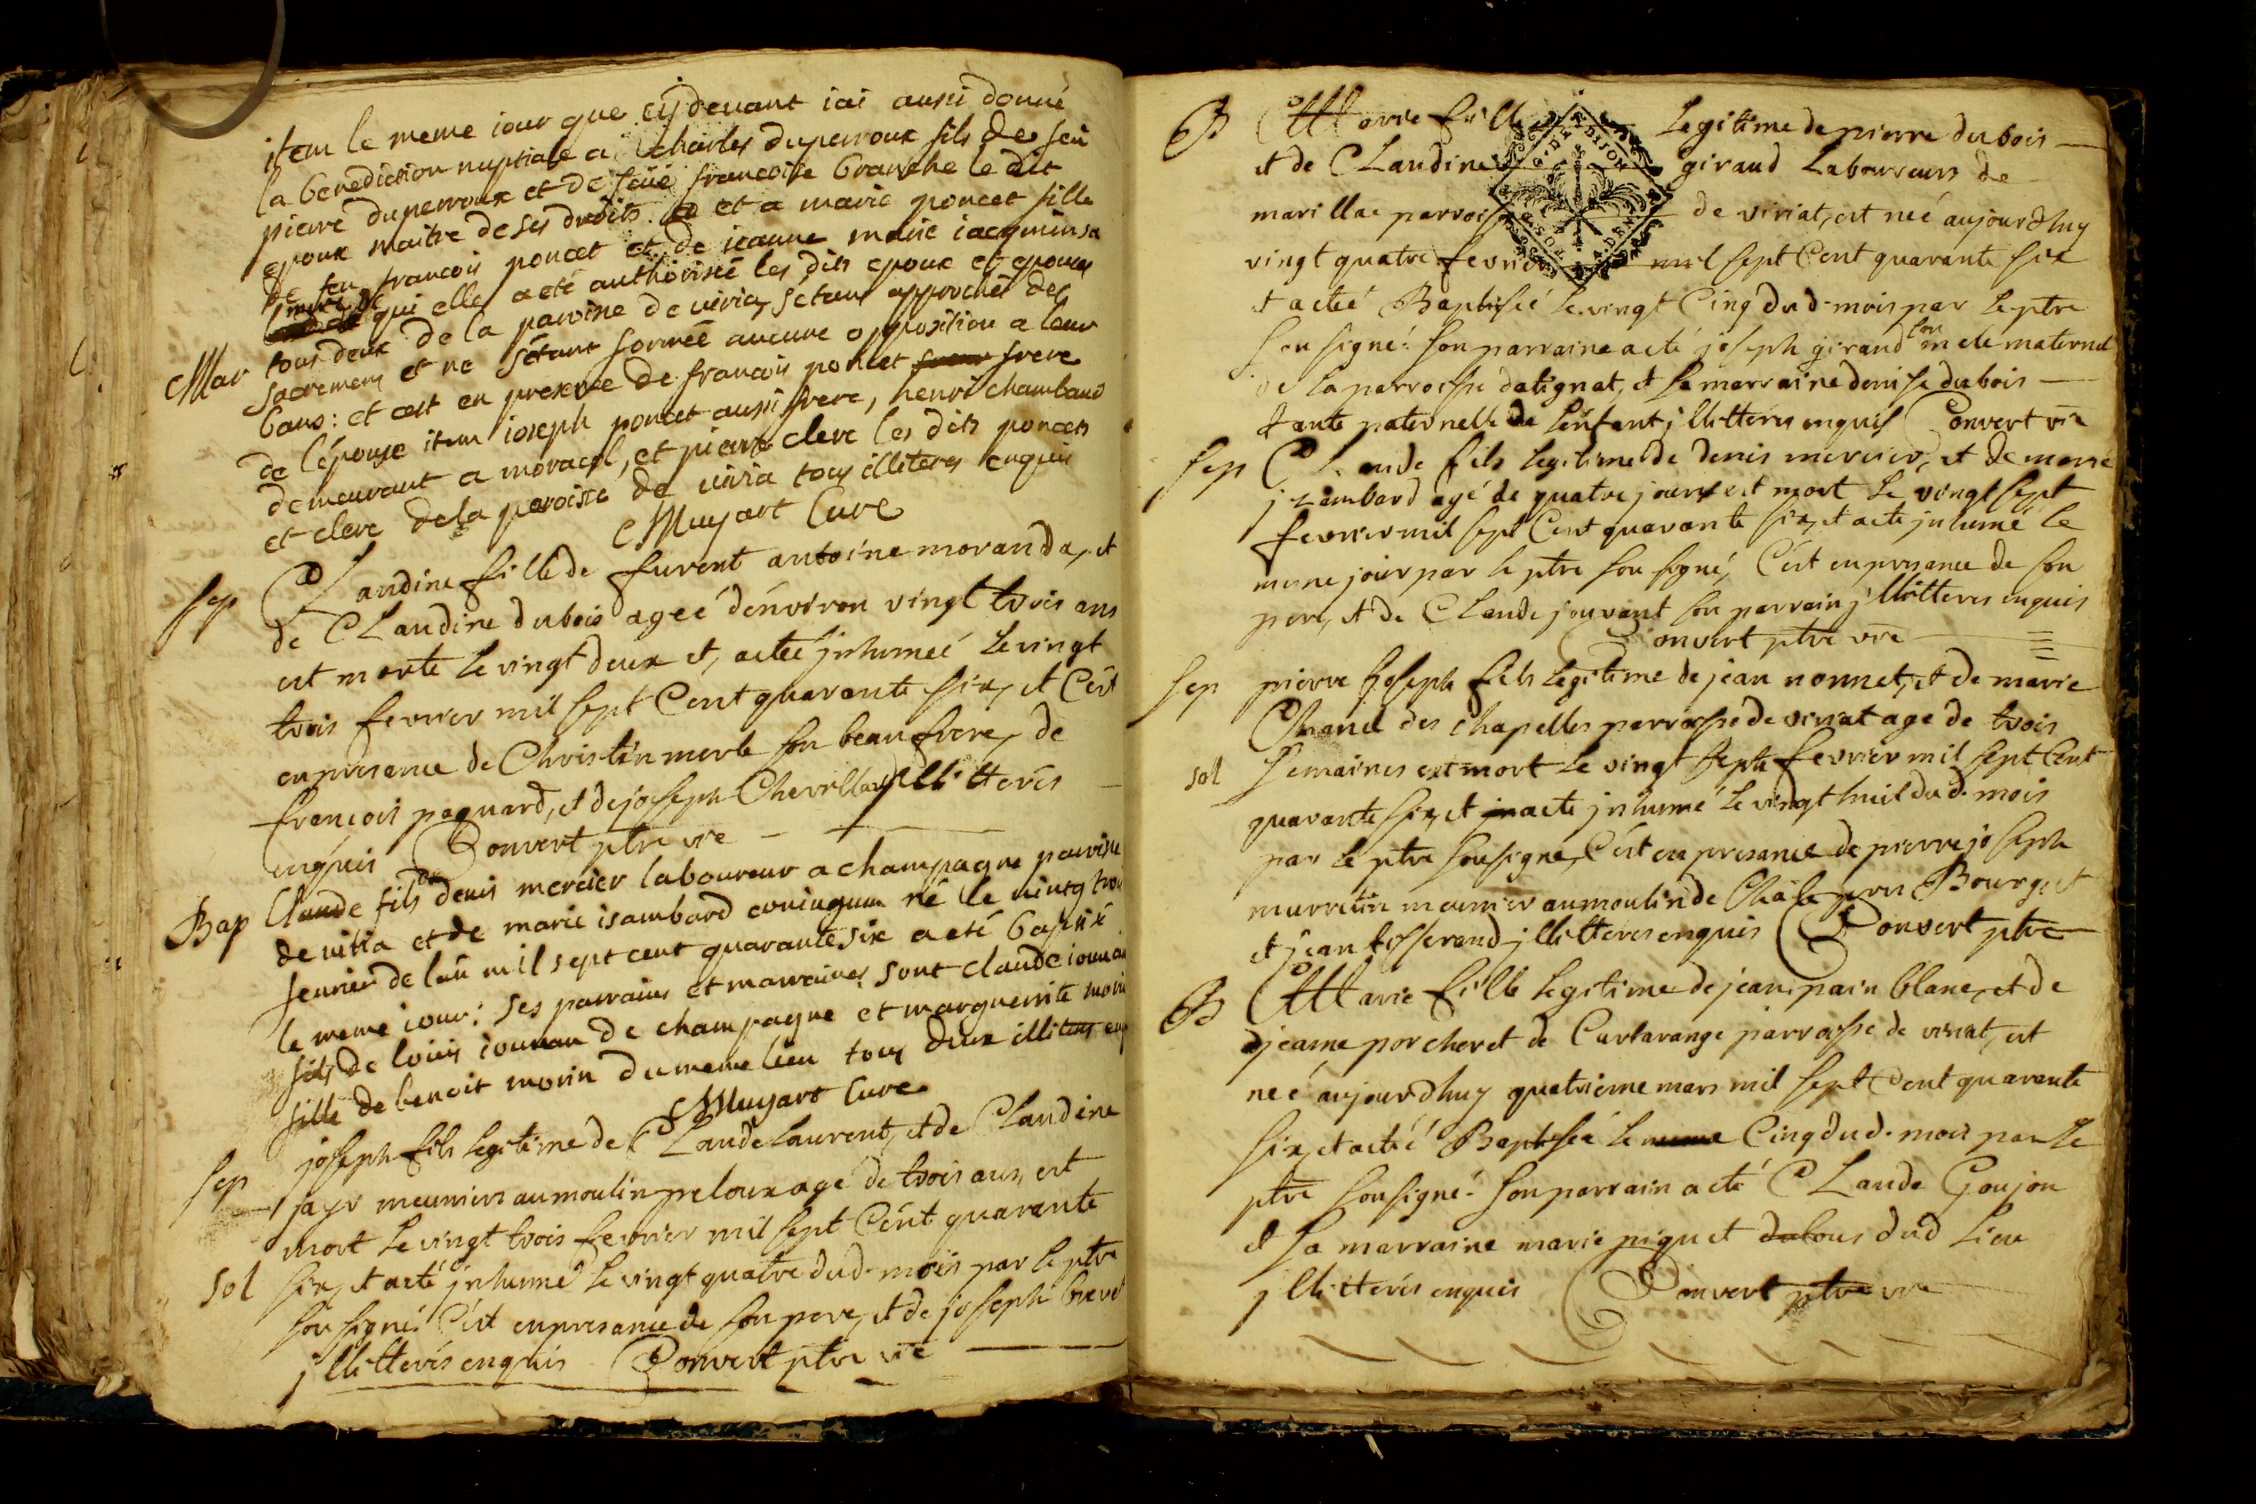 item le meme iour que cydevant iai aussi donné
la benediction nuptiale a charles duperroux fils de feu
pierre duperroux et de feüe francoise branche le dit
epoux maitre de ses droits et a marie poncet fille
de feu francois poncet et de ieanne marie iacquemin sa
mere de qui elle a eté authorisée les dits epoux et epouse
tous deux de la paroisse de viria, s'étant approchés des
Mar
sacremens et ne s'étant formée aucune opposition a leur
bans: et cest en presence de francois poncet frere
de l'épouse item ioseph poncet aussi frere, henri chambaud
demeurant a moracel, et pierre clerc les dits poncets
et clerc de la paroisse de viria tous illiteres enquis
Muyart Curé
Sep
CLaudine fille de furent antoine moranda, et
de CLaudine dubois ageé d'énviron vingt trois ans
est morte le vingt deux et, aeteé jnhumeé le vingt
trois fevrier mil sept Cent quarante six, et C'ést
en presence de Christin merle son beau frere, de
francois paquard, et de joseph Chevillard jllitterés
enquis Convert ptre vre
Bap
Claude fils de denis mercier laboureur a champagne paroisse
de viria et de marie isambard coniugum né le vingt trois
feurier de lan mil sept cent quarante six a eté baptisé
le meme iour: ses parrains et marraines sont claude iouvan
fils de louis iouvan de champagne et marguerite morin
fille de benoit morin du meme lieu tous deux illiteres enq
Muyart Curé
Sep
joseph fils legitime de CLaude Laurent, et de CLaudine
jayr meuniers au moulin peloux agé de trois ans, est
mort le vingt trois fevrier mil sept Cént quarante
Sol
six, et aeté jnhumé le vingt quatre dud. mois par le ptre
sousigné C'ést en presance de son pere, et de joseph brevet
jllitterés enquis Convert ptre vre
B
Marie fille legitime de pierre dubois
et de CLaudine giraud Laboureurs de
marillac parroisse de viriat, est neé aujourdhuy
vingt quatre fevrier mil sept Cent quarante six
et aeteé Baptiseé le vingt Cinq dud. mois par le ptre
sousigné. son parraine aeté joseph giraud son oncle maternel
de la parroisse datignat, et sa marraine denise dubois
tante paternelle de l'énfant jllitterés enquis Convert vre
Sep
CLaude fils legitime de denis mercier, et de marie
jzambard agé de quatre jours est mort le vingt sept
fevrier mil sept Cent quarante six, et aeté jnhumé le
meme jour par le ptre sousigné, C'ést en presance de son
pere, et de CLaude jouvant son parrain jllitterés enquis
Convert ptre vre
Sep
pierre joseph fils legitime de jean nonnet, et de marie
Chanel des chapelles parroisse de viriat age de trois
Sol
semaines est mort le vingt sept fevrier mil sept Cent
quarante six, et aeté jnhumé le vingt huit dud. mois
par le ptre sousigné, C'ést en presance de pierre joseph
murretin meunier au moulin de Chále pres Bourg et
et jean tisserand jllitterés enquis Convert ptre
B
Marie fille legitime de jean pain blanc, et de
jeanne porcheret de Curtarange parroisse de viriat, est
neé aujourdhuy quatrieme mars mil sept Cent quarante
six, et aeteé Baptiseé le meme Cinq dud. mois par le
ptre sousigné. son parrain aeté CLaude Goujon
et sa marraine marie piquet dud Lieu
jllitterés enquis Convert ptre vre